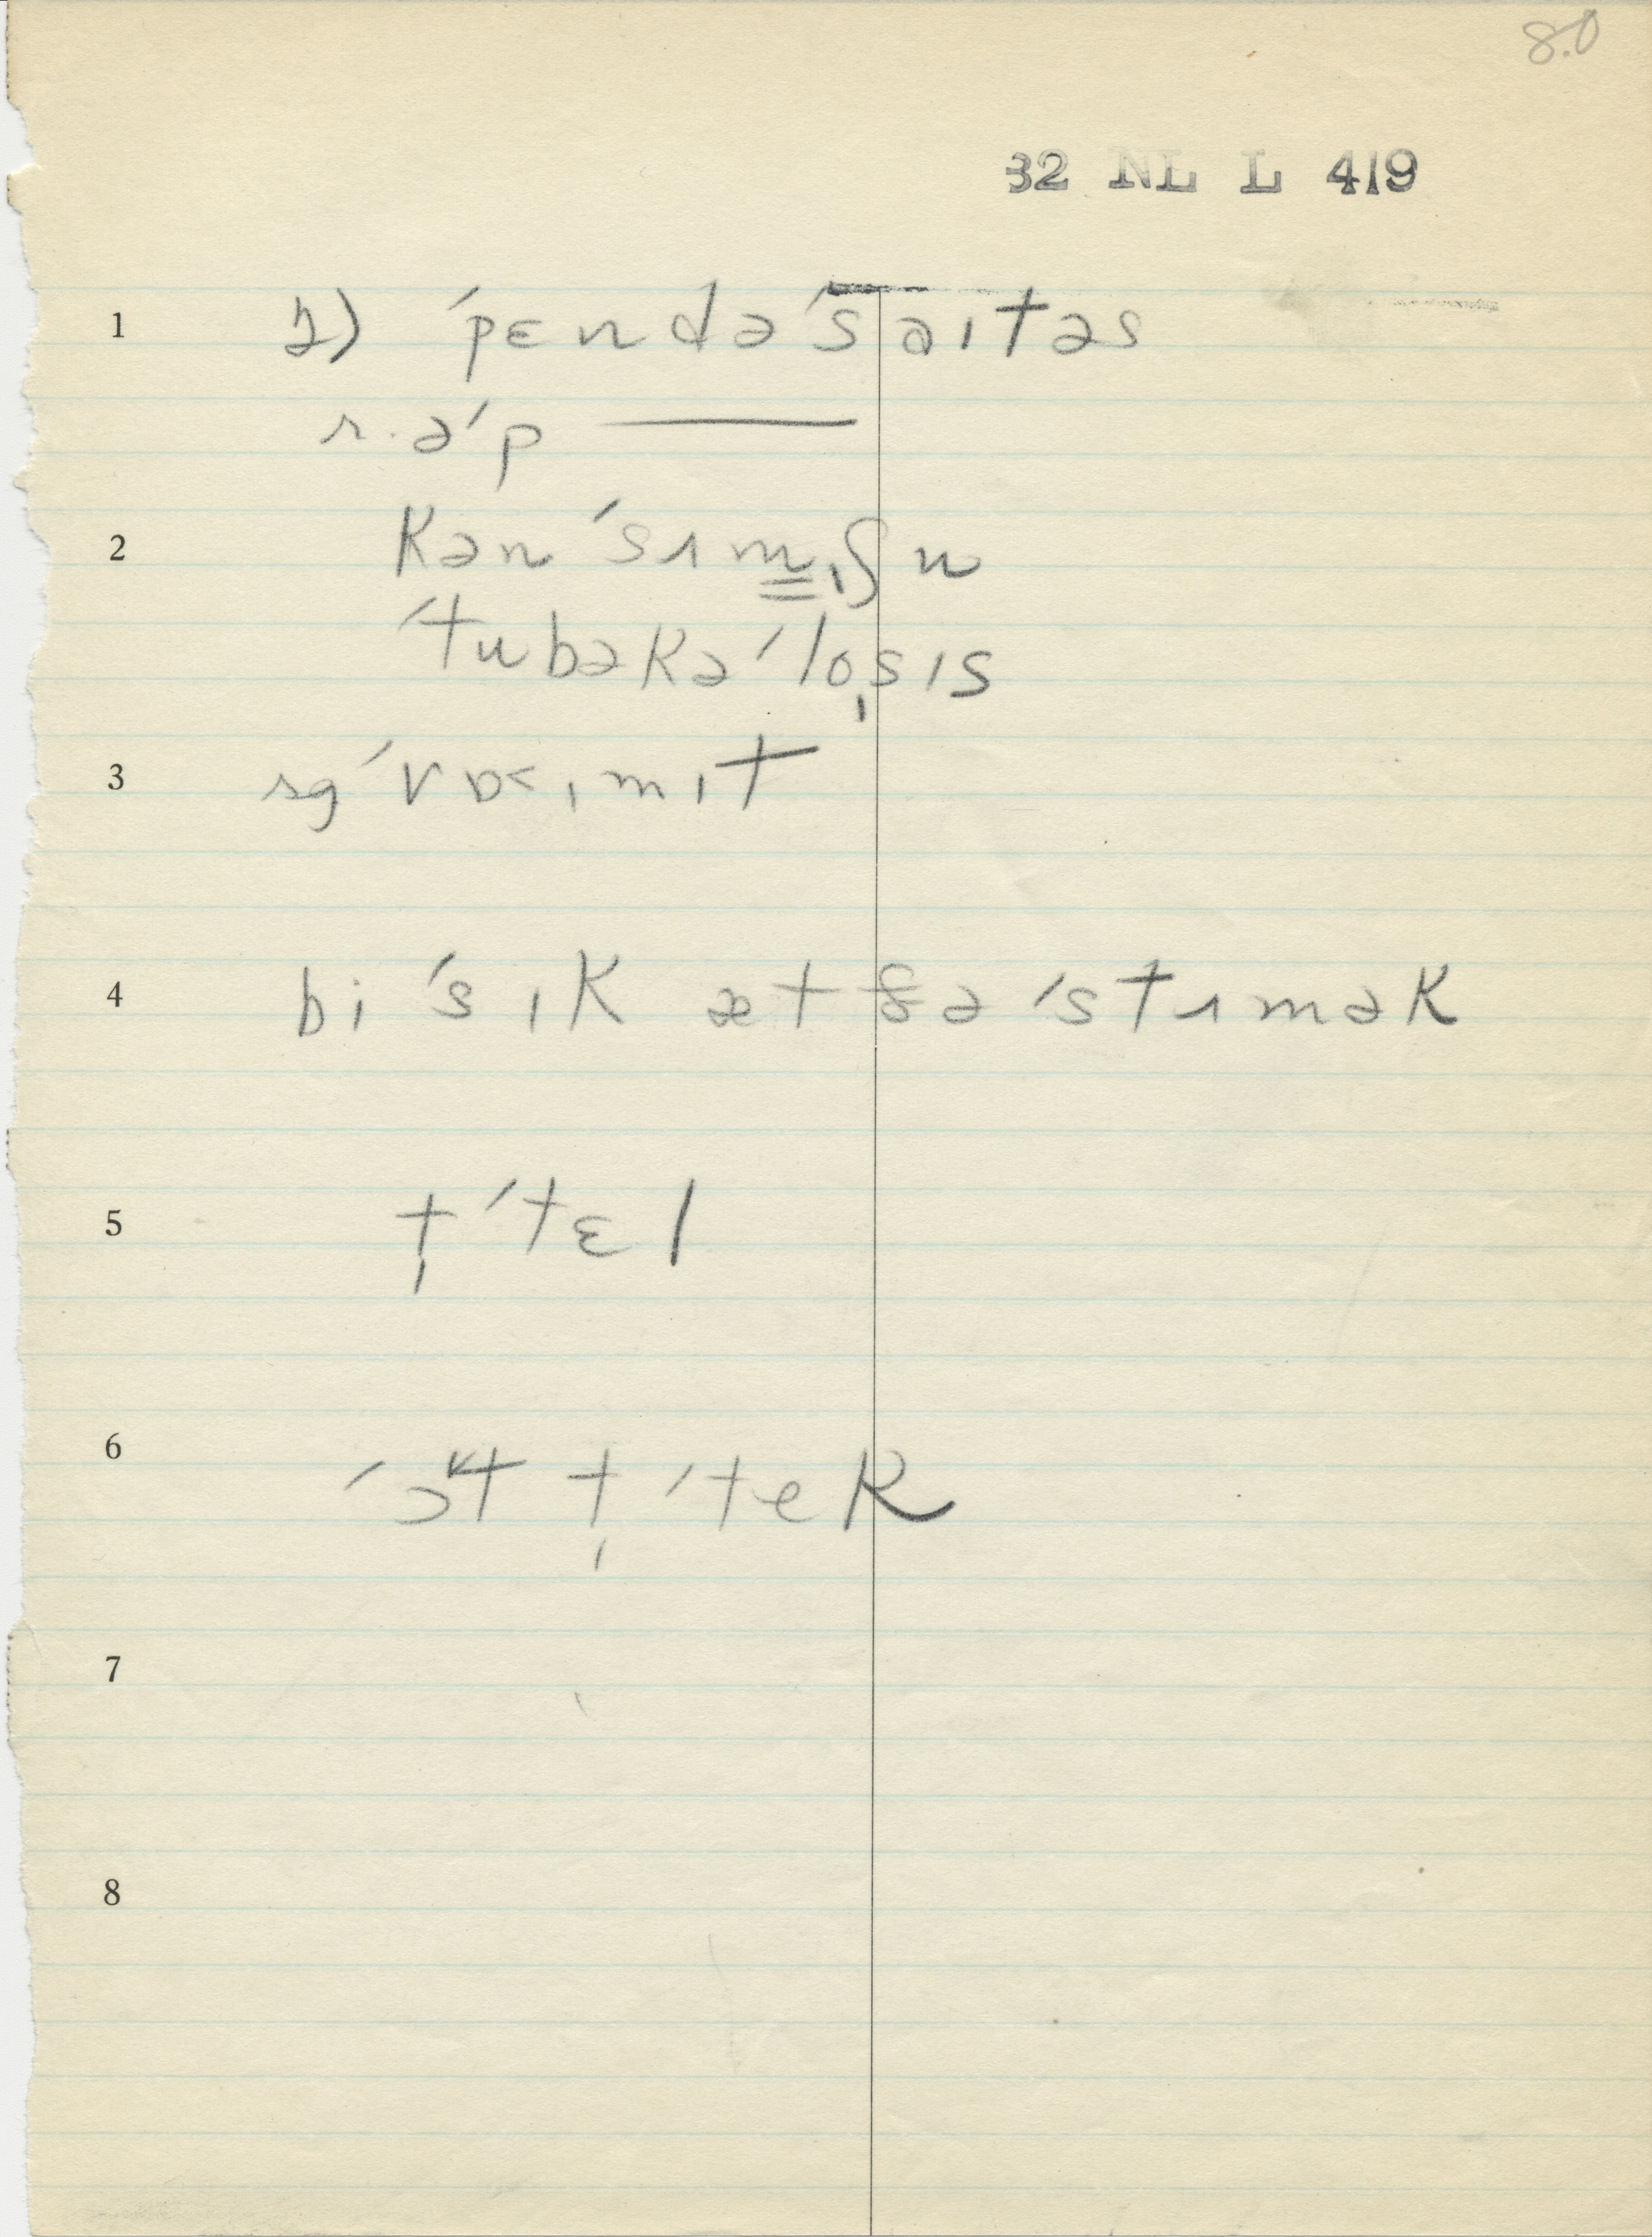 80
32 NL L 419
1 2) ˈpɛndəˈsaɪtəs
r. əˈp ———
2 kənˈsɪmɪʃn
ˈtubəkəˈlo̩sɪs
3 sgˈvɒ<ɪmɪt
4 biˈsɪk æt ðəˈstɪmək
5 t̩ˈtɛl
6 ˈɔ˅t t̩ˈtek
7
8